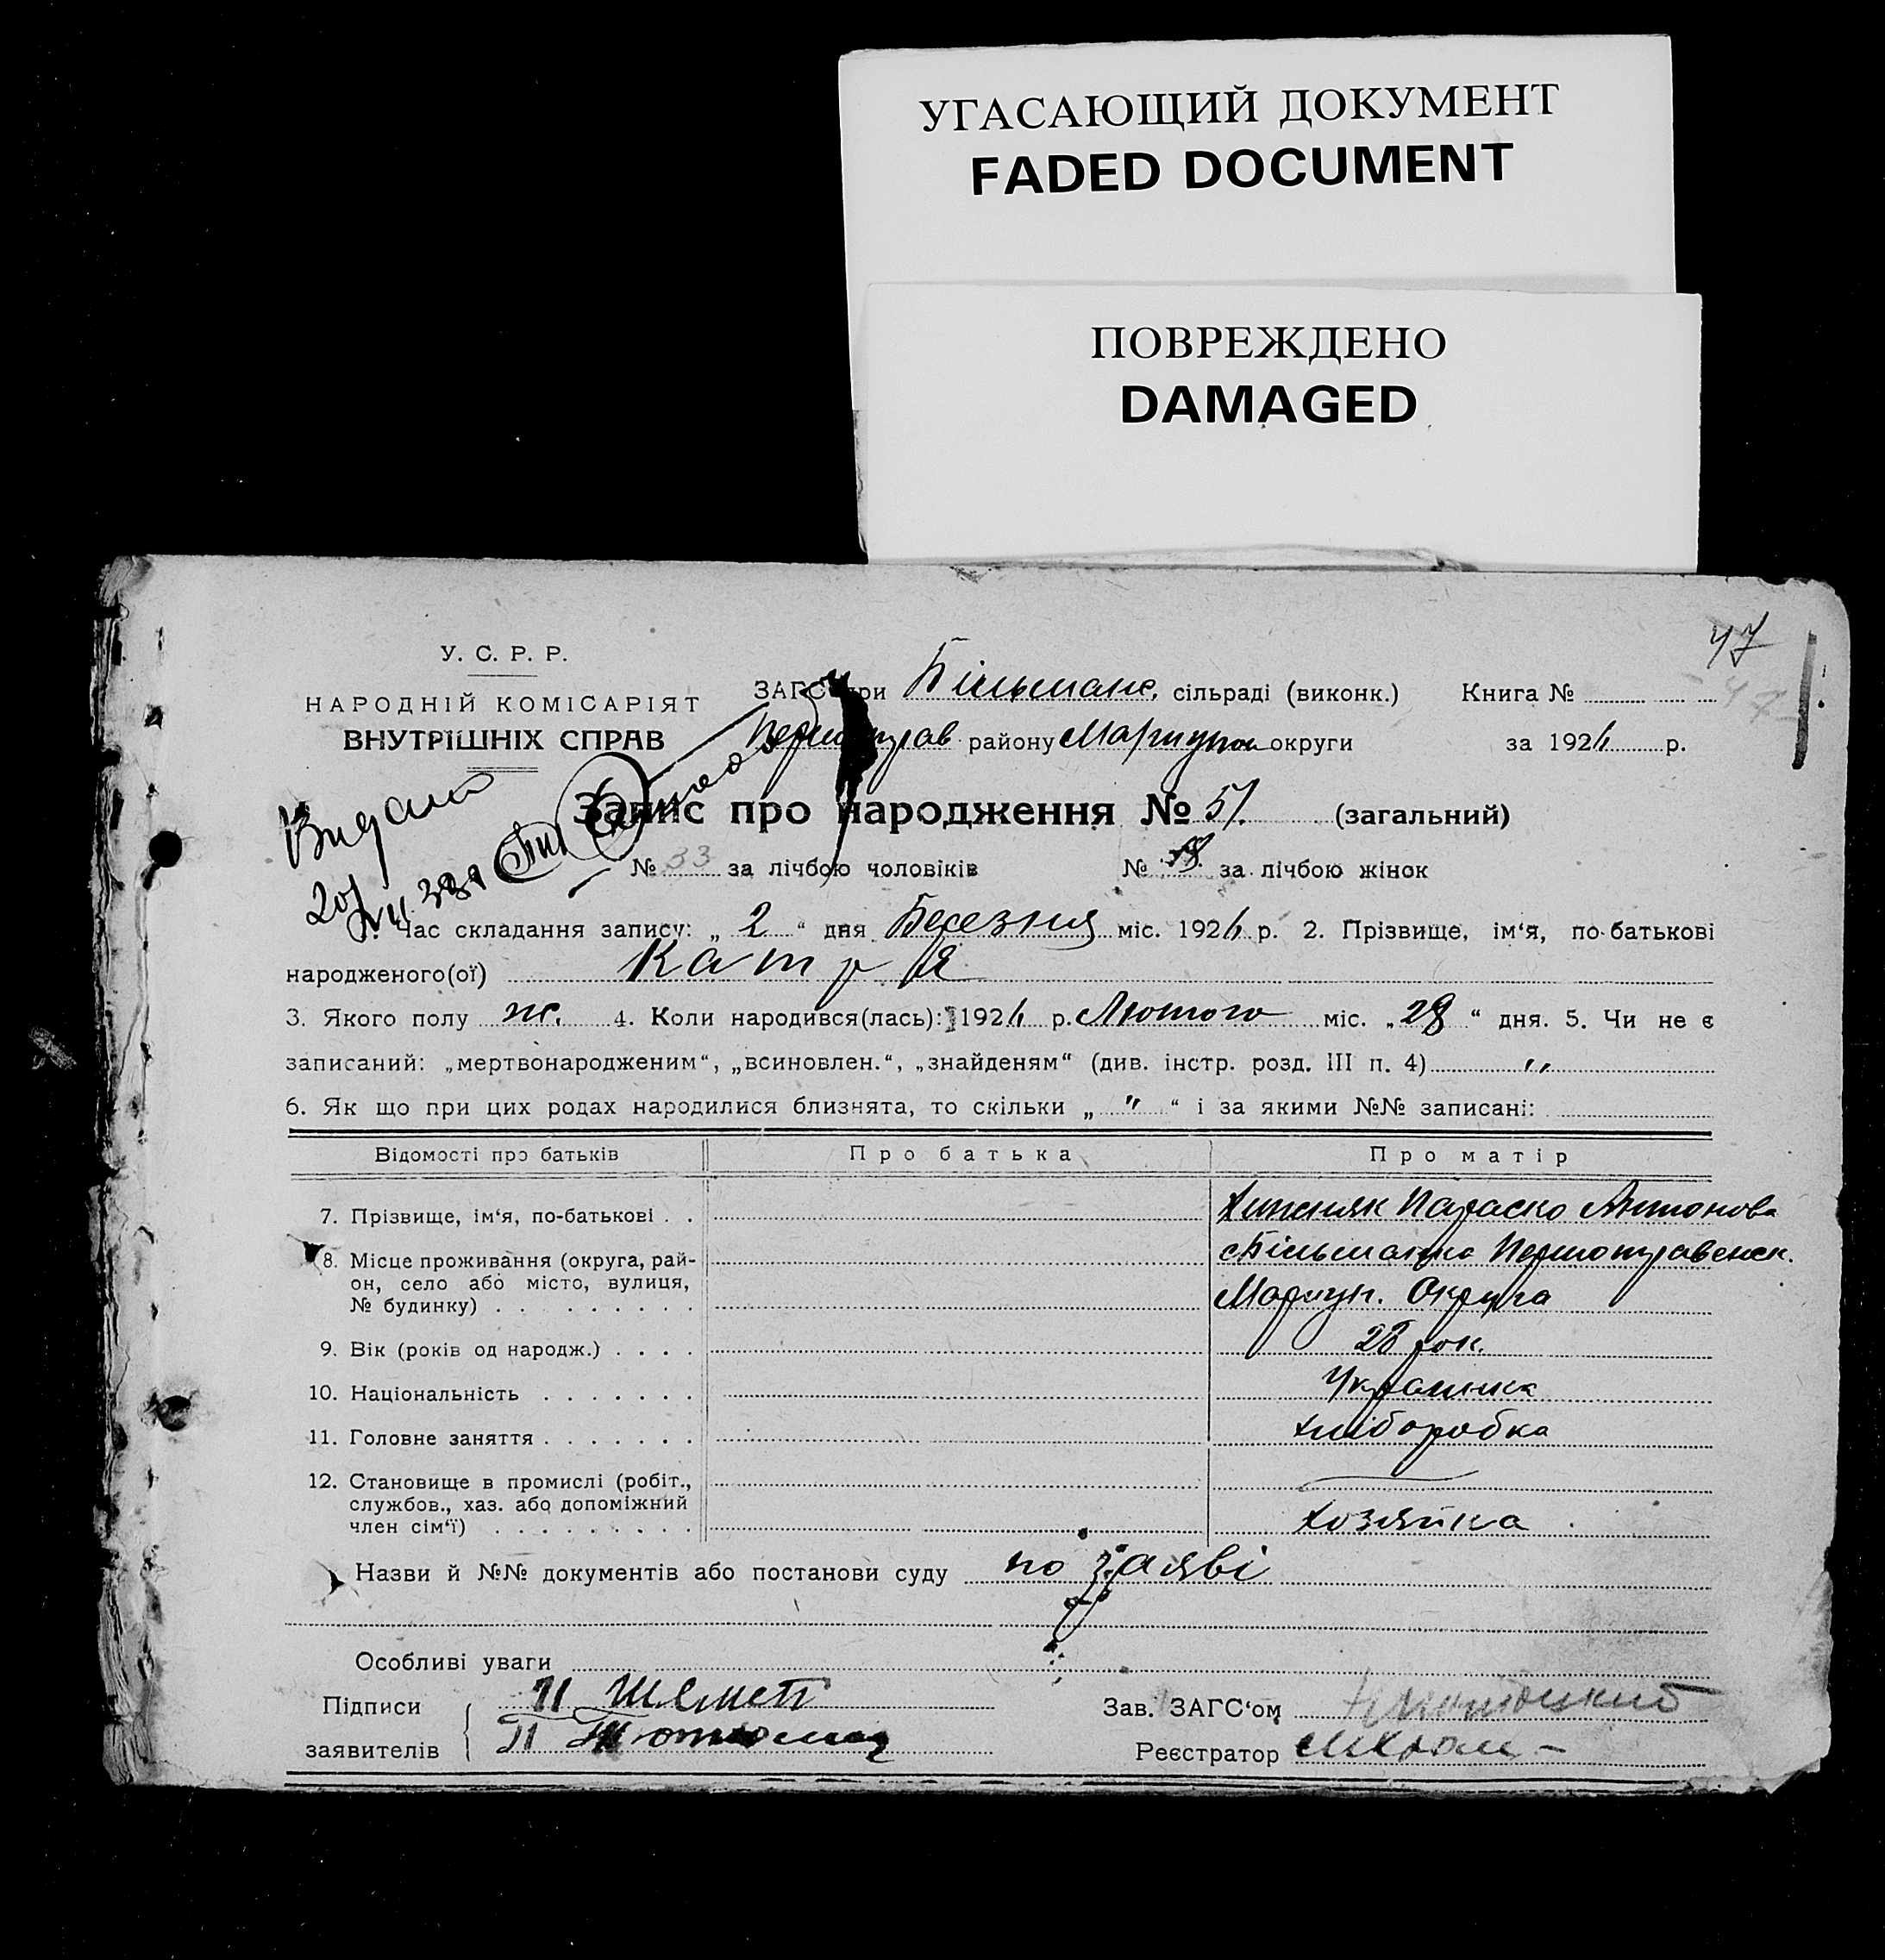 УГАСАЮЩИЙ ДОКУМЕНТ
FADED DOCUMENT
ПОВРЕЖДЕНО
DAMAGED
47
У. С. Р. Р.
НАРОДНІЙ КОМІСАРІЯТ
ВНУТРІШНІХ СПРАВ
ЗАГС при Більманс. сільраді (виконк.) Книга №
району Маріупол округи за 1926 р.
Видано
Запис про народження № 51. (загальний)
№ 33 за лічбою чоловіків № 18 за лічбою жінок
1. Час складання запису: „ 2 “ дня Березня міс. 1926 р. 2. Прізвище, ім‘я, по-батькові
народженого(ої) Катря
3. Якого полу ж. 4. Коли народився(лась): 1926 р. Лютого міс. „ 28 “ дня. 5. Чи не є
записаний: „мертвонародженим“, „всиновлен.“, „знайденям“ (див. інстр. розд. III п. 4) „
6. Як що при цих родах народилися близнята, то скільки „ " “ і за якими №№ записані:
Відомості про батьків Про батька Про матір
7. Прізвище, ім‘я, по-батькові . . Параско Антонова
8. Місце проживання (округа, рай- Більманка Першотравенск.
он, село або місто, вулиця, Маріуп. Округа
№ будинку) . . . . . . . . .
9. Вік (років од народж.) . . . . 28 рок.
10. Національність . . . . . . . Українка
11. Головне заняття . . . . . . . хліборобка
12. Становище в промислі (робіт.,
службов., хаз. або допоміжний
член сім‘ї) . . . . . . . . . хозяйка
Назви й №№ документів або постанови суду по заяві
Особливі уваги
Підписи
заявителів
Зав. ЗАГС‘ом
Реєстратор